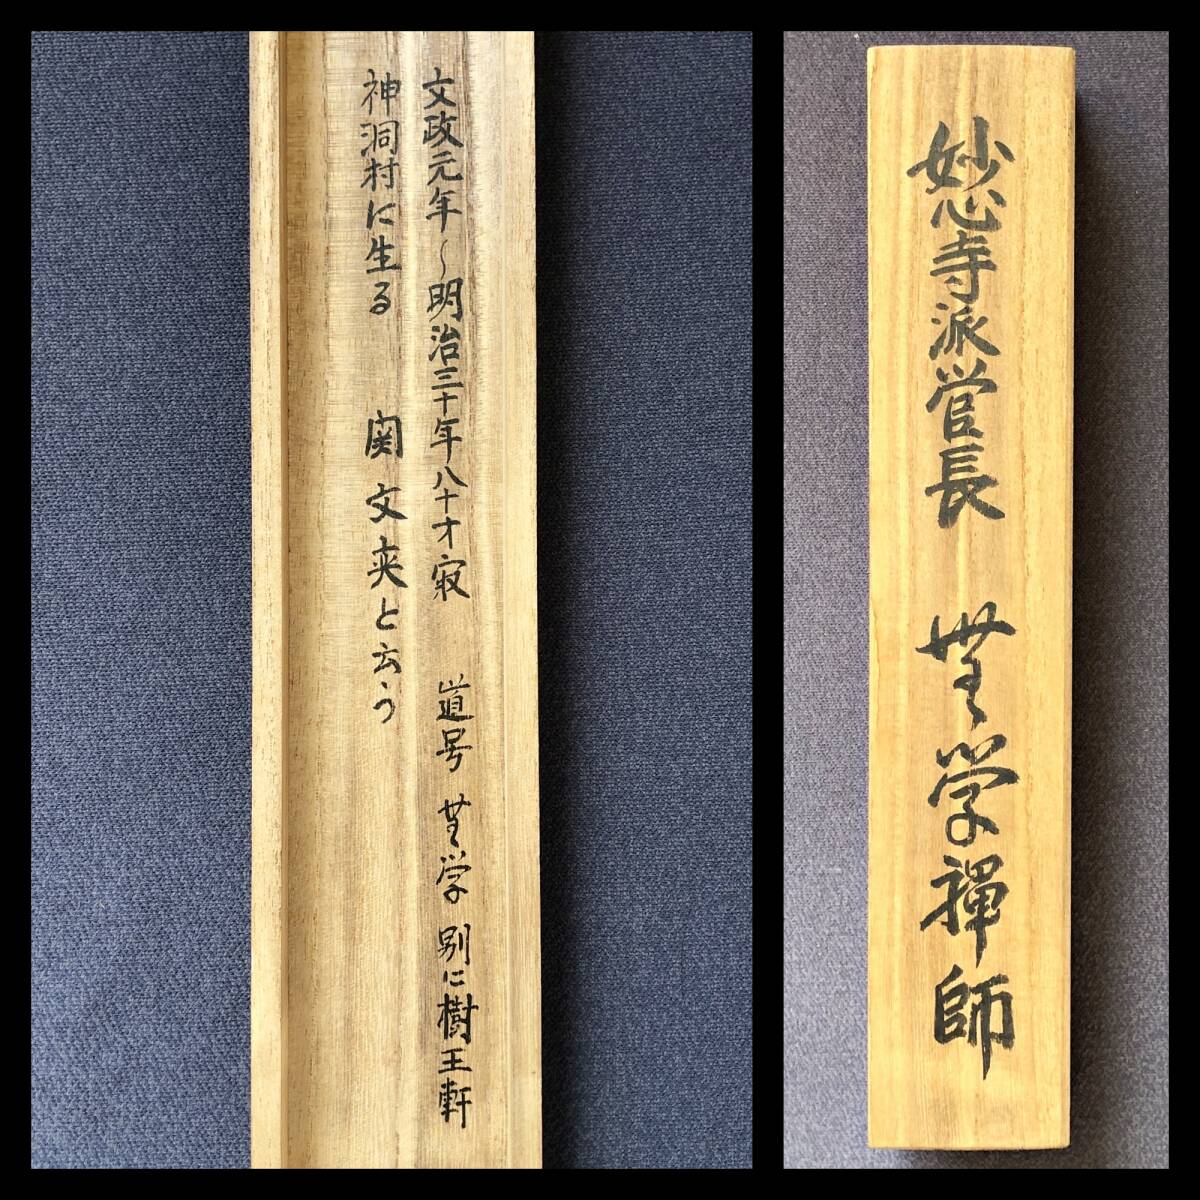 文政元年〜明治三十年八十才寂 道号 無学 別に樹王軒
神洞村に生る 関 文夾と云う
妙心寺派管長 無学禅師